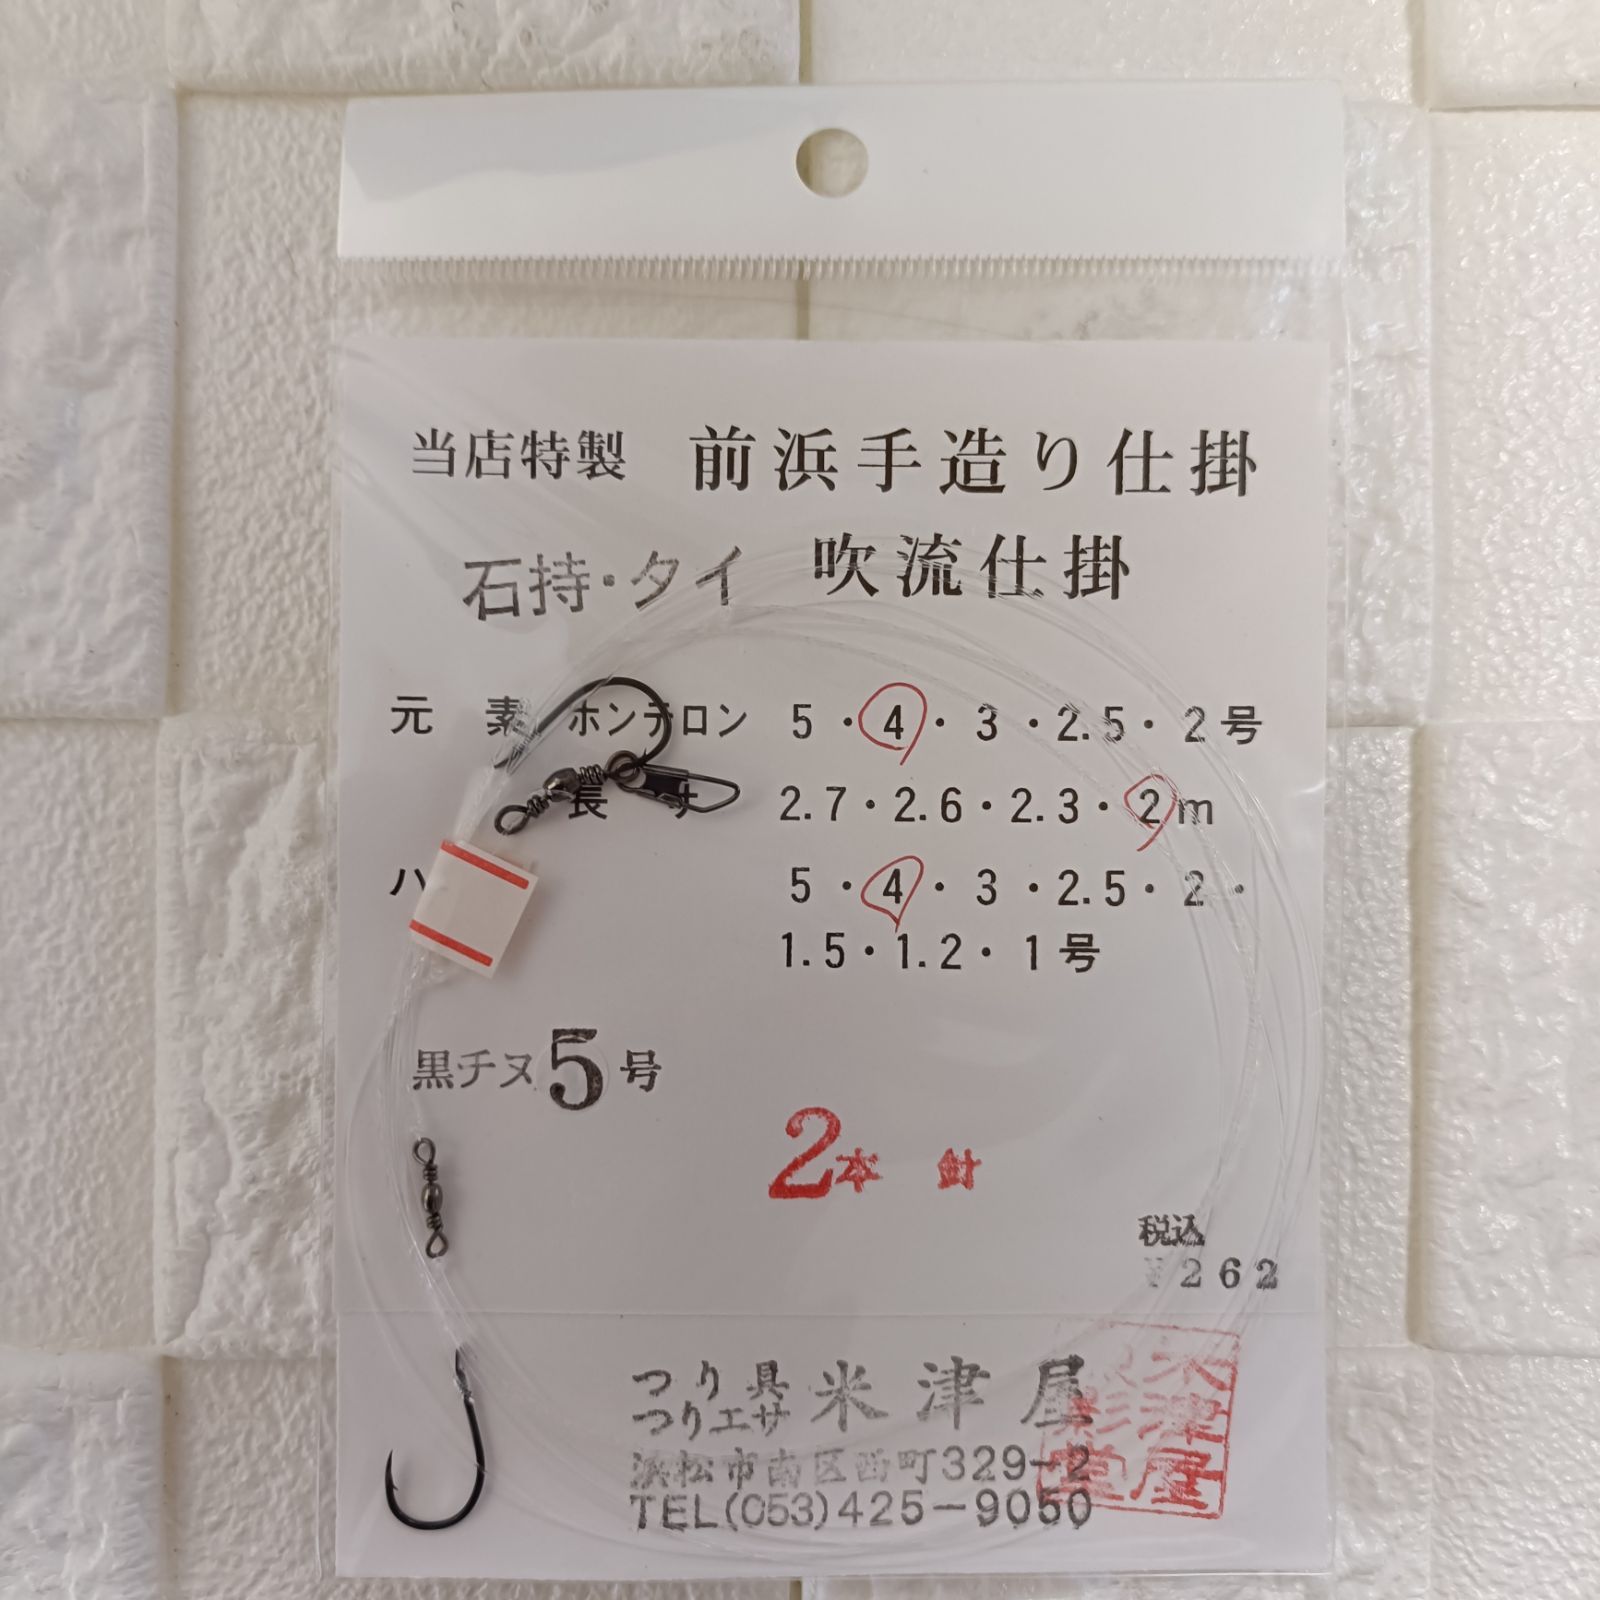 当店特製 前浜手造り仕掛
石持・タイ 吹流仕掛
元 素 ホンテロン 5・4・3・2.5・2号
長 サ 2.7・2.6・2.3・2m
ハ 5・4・3・2.5・2・
1.5・1.2・1号
黒チヌ5号
2本 針
税込
¥262
つり具
つりエサ 米津屋
浜松市南区西町329-2
TEL(053)425-9050
米津屋